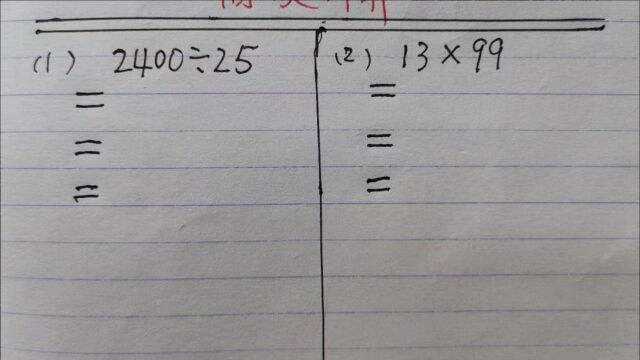 (1) 2400÷25
=
=
=
(2) 13×99
=
=
=